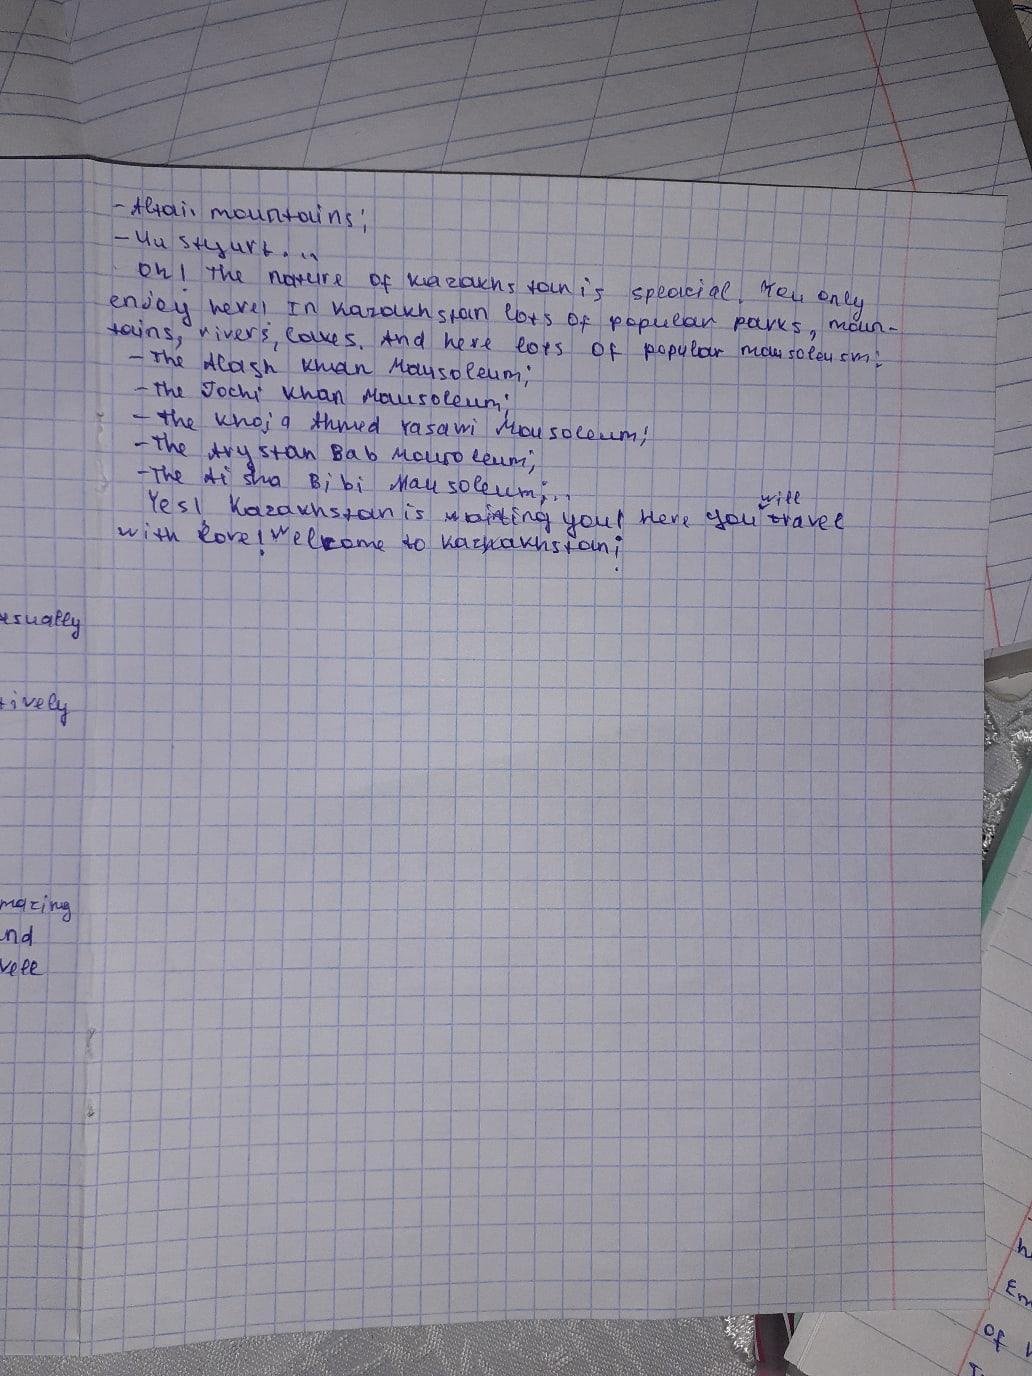 - Altai mountains;
- Uu styurt...
Oh! The nature of Kazakhstan is speacial. You only
enjoy here! In Kazakhstan lots of popular parks, moun-
tains, rivers, lakes. And here lots of popular mausoleusm:
- The Alash Khan Mausoleum;
- The Jochi Khan Mausoleum;
- The Khoja Ahmed Yasawi Mausoleum;
- The Arystan Bab Mausoleum;
- The Aisha Bibi Mausoleum;...
Yes! Kazakhstan is waiting you! Here you will travel
with love! Welcome to Kazkakhstan!
usually
tively
mazing
nd
vell
h
Em
of